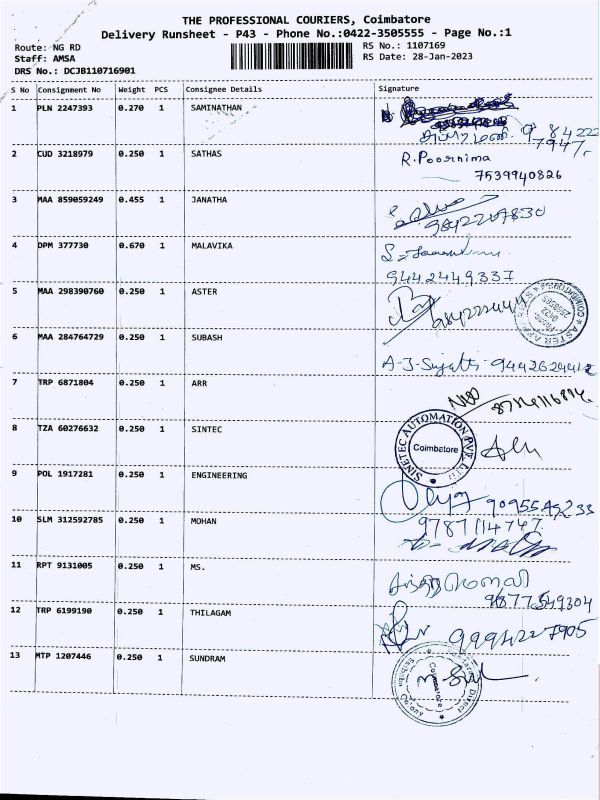 THE PROFESSIONAL COURIERS, Coimbatore
Delivery Runsheet - P43 - Phone No.:0422-3505555 - Page No.:1
Route: NG RD RS No.: 1107169
Staff: AMSA RS Date: 28-Jan-2023
DRS No.: DCJB110716901
S No Consignment No Weight PCS Consignee Details Signature
1 PLN 2247393 0.270 1 SAMINATHAN
2 CUD 3218979 0.250 1 SATHAS R.Poornima
7539940826
3 MAA 859059249 0.455 1 JANATHA
9842207830
4 DPM 377730 0.670 1 MALAVIKA
9442449337
5 MAA 298390760 0.250 1 ASTER
6 MAA 284764729 0.250 1 SUBASH
7 TRP 6871804 0.250 1 ARR
8 TZA 60276632 0.250 1 SINTEC SINETEC AUTOMATION PVT LTD Coimbatore
9 POL 1917281 0.250 1 ENGINEERING
10 SLM 312592785 0.250 1 MOHAN 9787114747
11 RPT 9131005 0.250 1 MS.
9877549304
12 TRP 6199190 0.250 1 THILAGAM
13 MTP 1207446 0.250 1 SUNDRAM Coimbatore